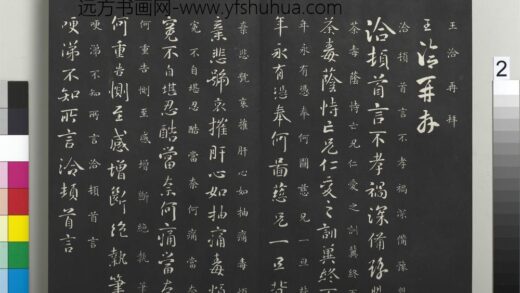 远方书画网-www.yfshuhua.com
2
王洽再拜
王洽
洽頓首言不孝禍深備豫
洽頓首言不孝禍深備豫
荼毒蔭恃亡兄仁愛之訓冀終
荼毒蔭恃亡兄仁愛之訓冀終
年永有憑奉何圖慈兄一旦
年永有憑奉何圖慈兄一旦背
棄悲號哀摧肝心如抽痛毒
棄悲號哀摧肝心如抽痛毒煩
冤不自堪忍酷當奈何痛當
冤不自堪忍酷當奈何痛當奈
何重告惻至感增斷絕執筆
何重告惻至感增斷絕執筆
哽涕不知所言洽頓首言
哽涕不知所言洽頓首言